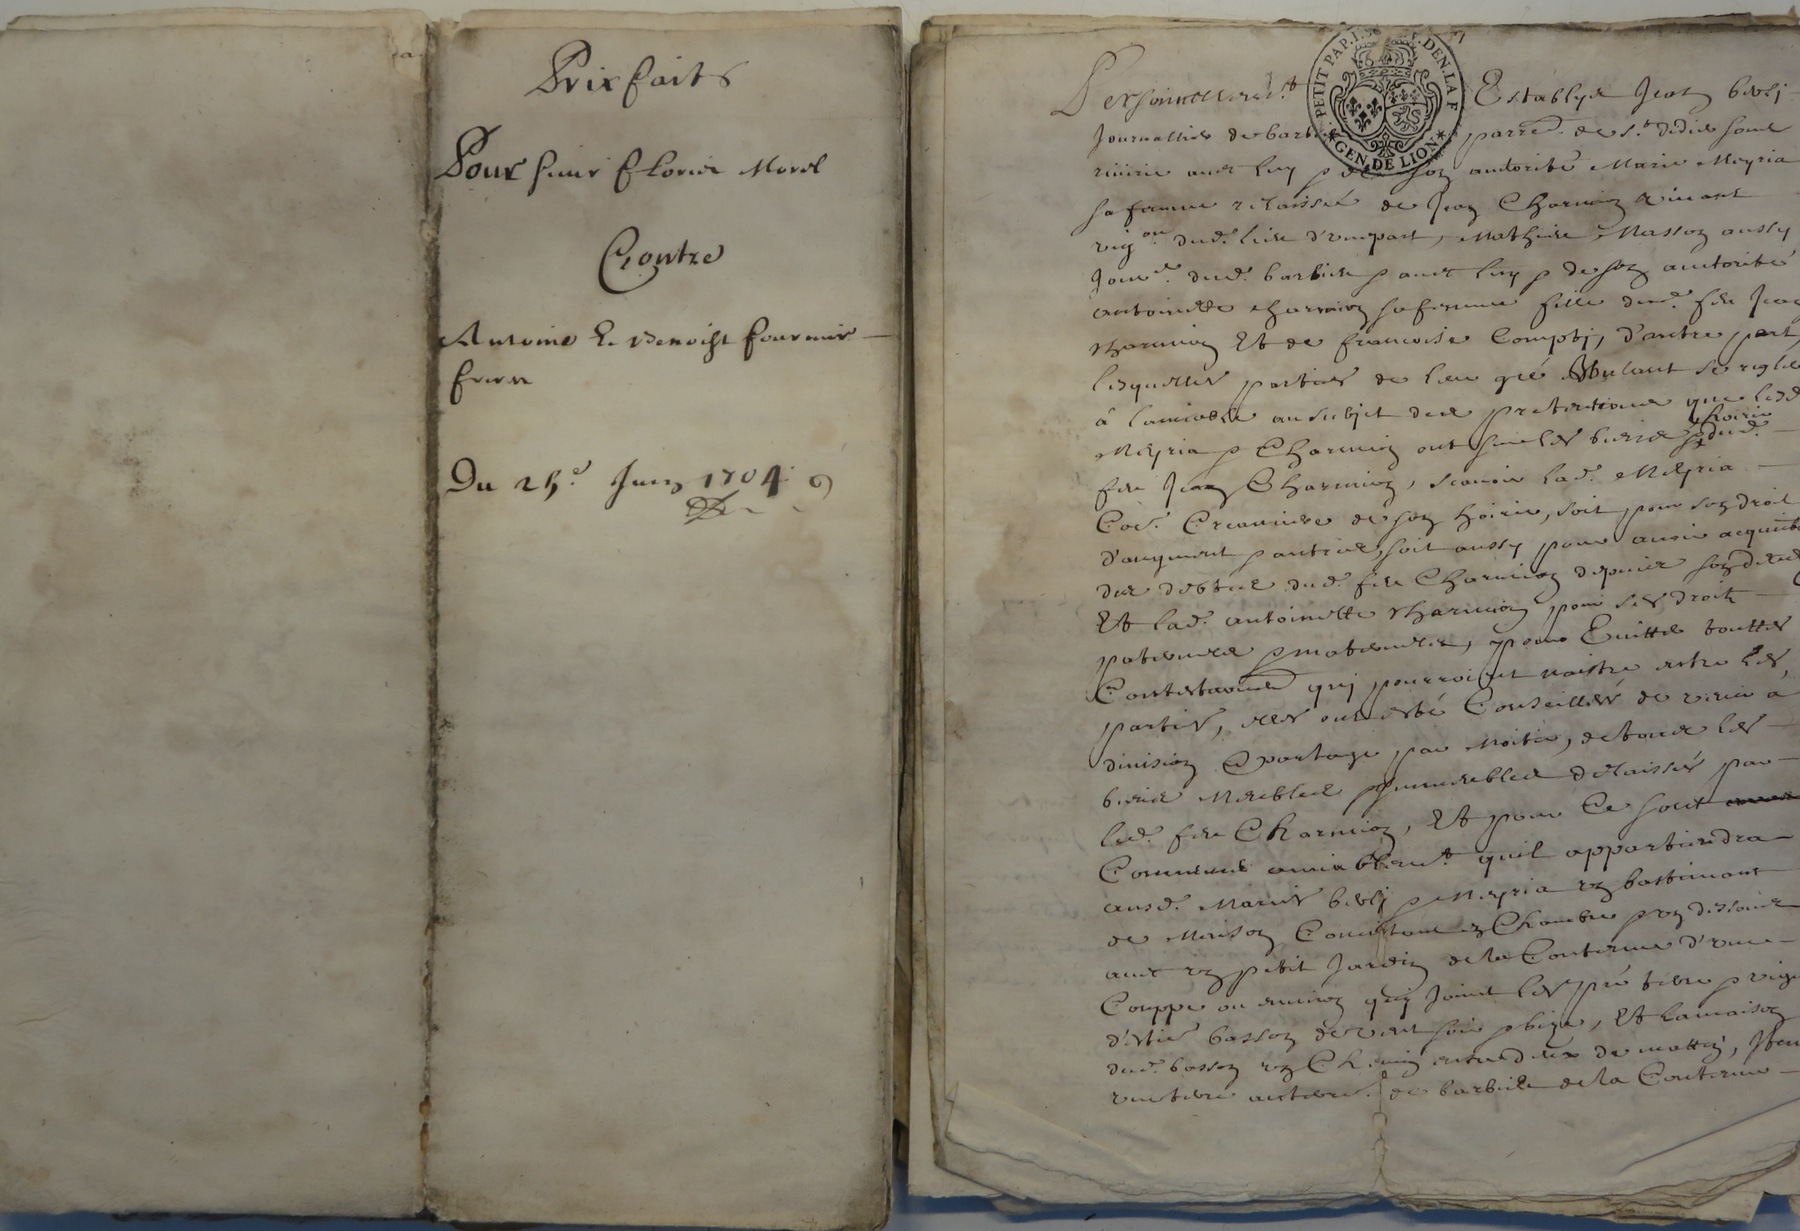 Prixfaits
Pour sieur Florie Morel
Contre
Antoine & Benoist fournier
freres
Du 25e Juin 1704
PETIT PAP. DEN. LA F
GEN. DE LION
Personnellemt Establys Jean
Journallier de parre. de St. didier soub
riviere avec luy p de son authorité Marie Meyria
sa femme relaissée de Jean Charmion vivant
vigon. dud. lieu d'une part, Mathieu Masson aussy
Jour. dud. barbier p avec luy p de son authorité
antoinette charmion sa femme fille dud. feu Jean
charmion Et de francoise d'autre part,
lesquelles parties de leur gré Voulant se regler
à lamiable au subjet des pretentions que led.
Meyria p Charmion ont sur les biens p hoirie dud.
feu Jean Charmion, scavoir lad. Meyria
Creanciere de son hoirie, soit pour son droit
d'augment p autres, soit aussy pour avoir acquitté
des debtes dud. feu Charmion depuis son deces
Et lad. antoinette charmion pour ses droits
paternels p maternels, pour Evitter touttes
Contestations qui pourroient naistre entre les
parties, elles ont esté Conseillés de venir à
division p partage par Moitié, de tous les
biens Meubles p immeubles delaissés par
led. feu Charmion, Et pour Ce sont
Convenus amiablemt. quil appartiendra
ausd. Mariés p Meyria un bastiment
de Maison Consistant en Chambre p un dessous
avec un petit Jardin de la Contenue d'une
Couppe ou environ qui Joint les pré terre p vigne
basson de vent soir p bize, Et la maison
dud. basson un Chemin entre deux de mattin, Item
une terre de la Contenue